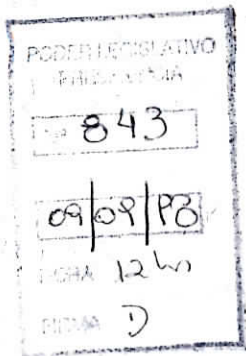 PODER LEGISLATIVO
843
09/09/93
HORA 12 hs
FIRMA